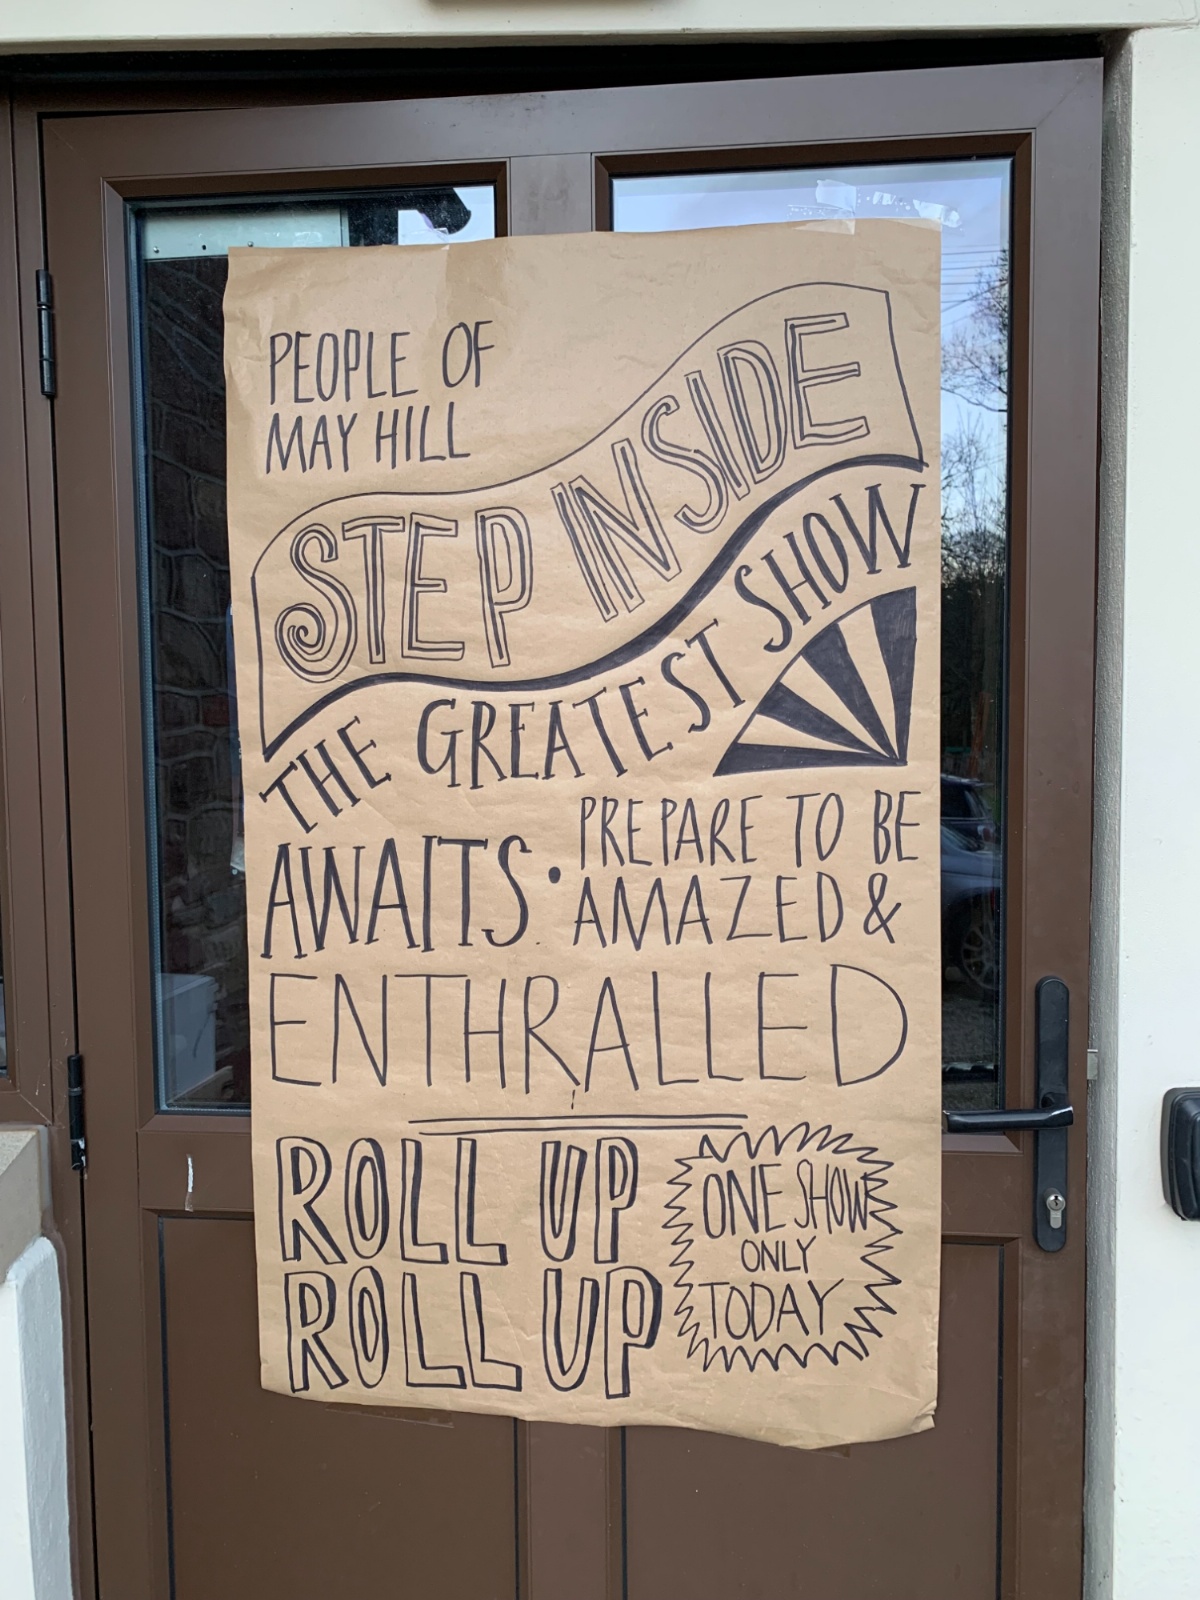 PEOPLE OF
MAY HILL
STEP INSIDE
THE GREATEST SHOW
AWAITS •
PREPARE TO BE
AMAZED &
ENTHRALLED
ROLL UP
ROLL UP
ONE SHOW
ONLY
TODAY